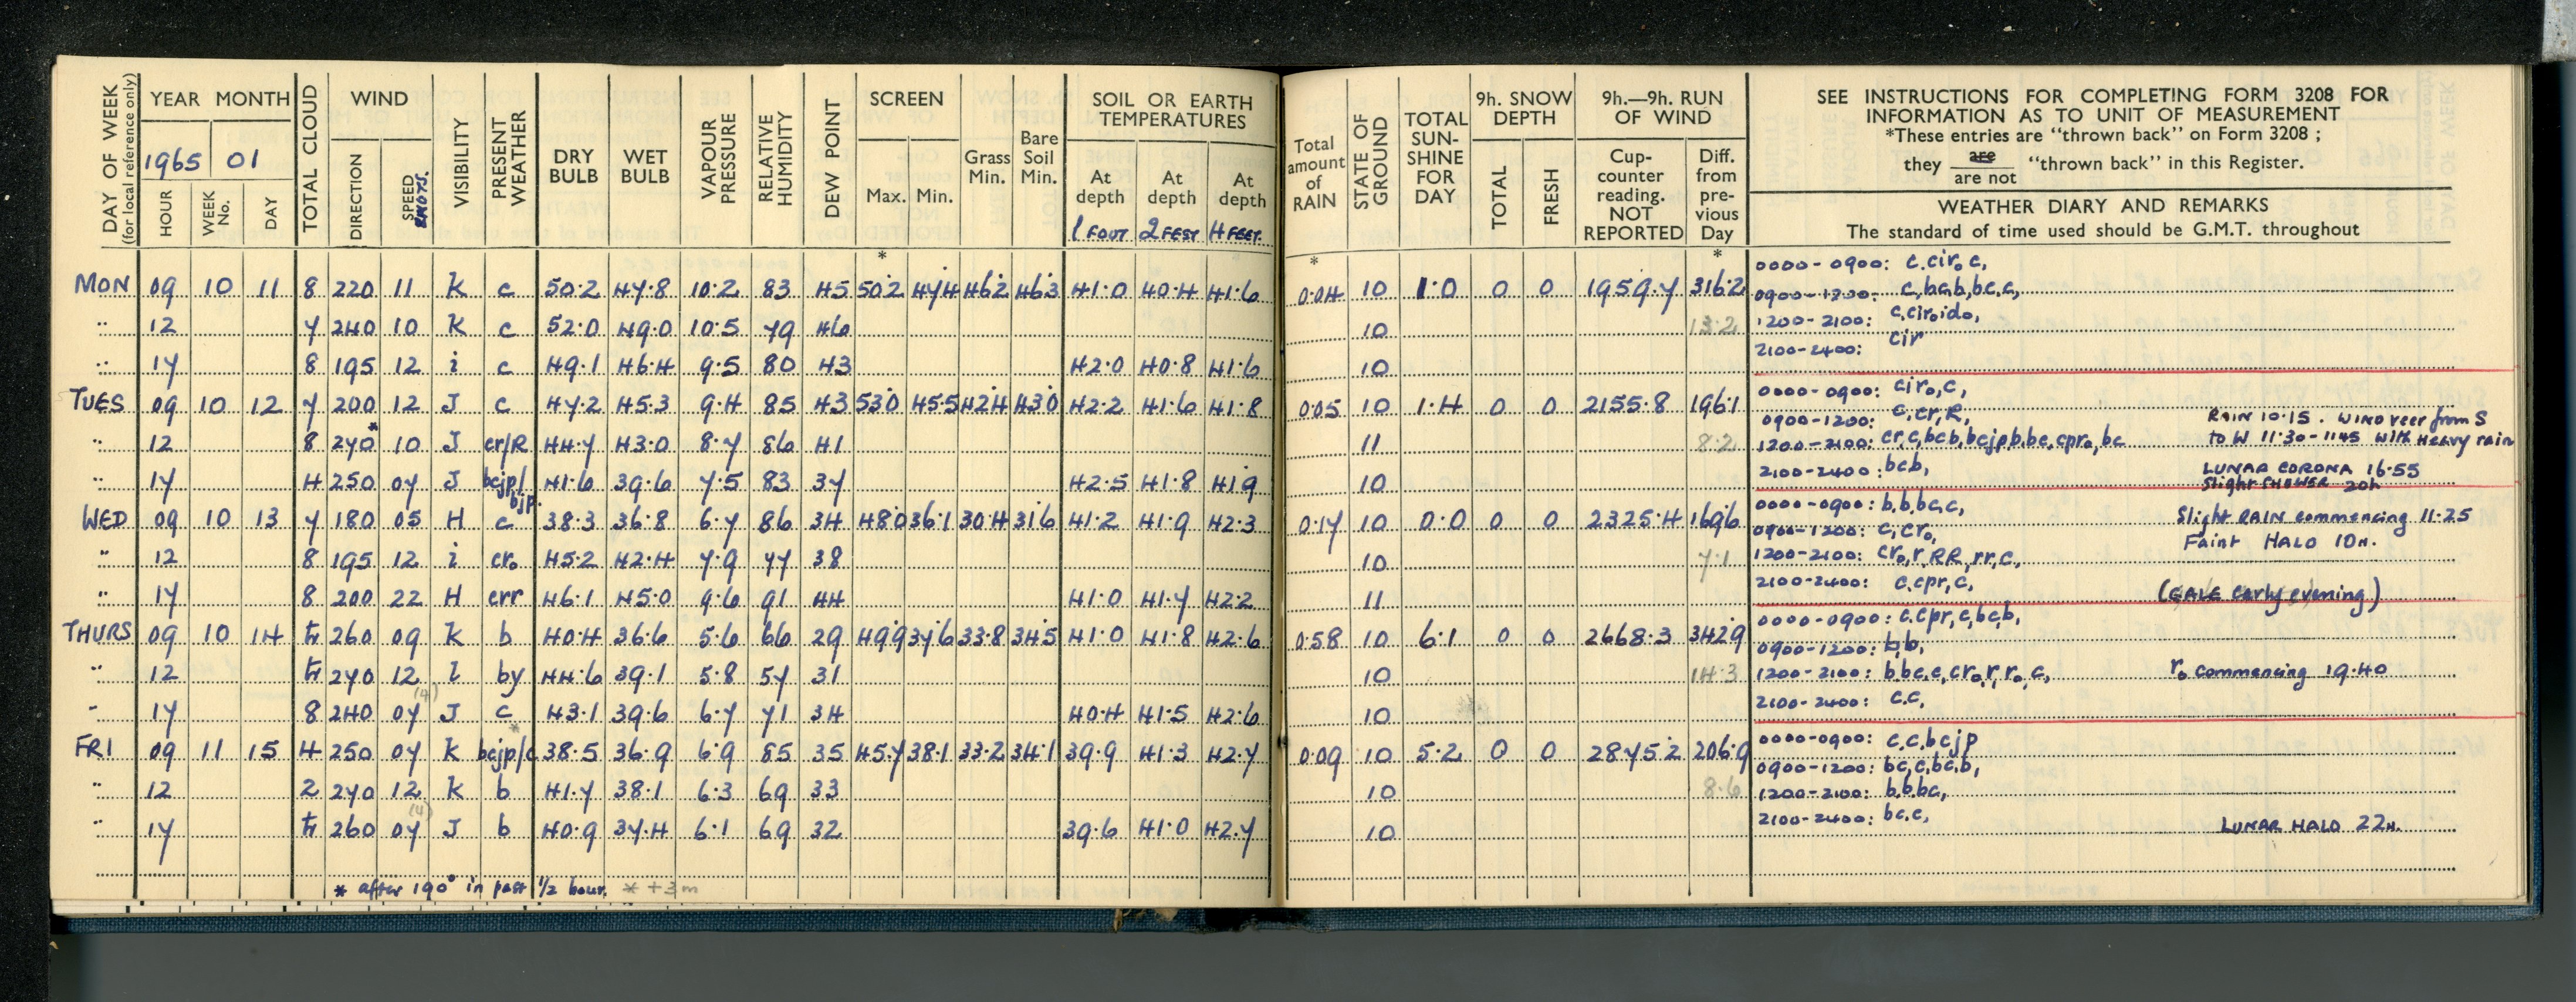 DAY OF WEEK (for local reference only)
YEAR MONTH
1965 01
HOUR WEEK No. DAY
TOTAL CLOUD
WIND
DIRECTION SPEED KNOTS.
VISIBILITY
PRESENT WEATHER
DRY BULB
WET BULB
VAPOUR PRESSURE
RELATIVE HUMIDITY
DEW POINT
SCREEN
Max. Min.
Grass Min.
Bare Soil Min.
SOIL OR EARTH TEMPERATURES
At depth 1 FOOT
At depth 2 FEET
At depth 4 FEET.
Total amount of RAIN
STATE OF GROUND
TOTAL SUN-SHINE FOR DAY
9h. SNOW DEPTH
TOTAL FRESH
9h.—9h. RUN OF WIND
Cup-counter reading. NOT REPORTED
Diff. from pre-vious Day
SEE INSTRUCTIONS FOR COMPLETING FORM 3208 FOR
INFORMATION AS TO UNIT OF MEASUREMENT
*These entries are "thrown back" on Form 3208 ;
they are / are not "thrown back" in this Register.
WEATHER DIARY AND REMARKS
The standard of time used should be G.M.T. throughout
* * *
MON 09 10 11 8 220 11 K c 50·2 47·8 10·2 83 45 50·2 47·4 46·2 46·3 41·0 40·4 41·6 0·04 10 1·0 0 0 1959·7 316·2
0000-0900: c.cir₀c,
0900-1200: c,bcb,bc,c,
" 12 7 240 10 K c 52·0 49·0 10·5 79 46 10 13·2
1200-2100: c,cir₀id₀,
" 17 8 195 12 i c 49·1 46·4 9·5 80 43 42·0 40·8 41·6 10
2100-2400: cir
TUES 09 10 12 7 200 12 J c 47·2 45·3 9·4 85 43 53·0 45·5 42·4 43·0 42·2 41·6 41·8 0·05 10 1·4 0 0 2155·8 196·1
0000-0900: cir₀,c,
0900-1200: c,cr,R, RAIN 10·15. WIND veer from S
" 12 8 270* 10 J cr/R 44·7 43·0 8·7 86 41 11 8·2
1200-2100: cr,c,bcb,bcjp,b,bc,cpr₀,bc to W 11·30-1145 with Heavy rain
" 17 4 250 07 J bcjp/bjp. 41·6 39·6 7·5 83 37 42·5 41·8 41·9 10
2100-2400: bcb, LUNAR CORONA 16·55
Slight SHOWER 20h
WED 09 10 13 7 180 05 H c 38·3 36·8 6·7 86 34 48·0 36·1 30·4 31·6 41·2 41·9 42·3 0·17 10 0·0 0 0 2325·4 169·6
0000-0900: b.b.bc,c, Slight RAIN commencing 11·25
0900-1200: c,cr₀, Faint HALO 10H.
" 12 8 195 12 i cr₀ 45·2 42·4 7·9 77 38 10 7·1
1200-2100: cr₀,r.RR,rr,c,
" 17 8 200 22 H crr 46·1 45·0 9·6 91 44 41·0 41·7 42·2 11
2100-2400: c.cpr,c, (GALE early evening)
THURS 09 10 14 tr 260 09 K b 40·4 36·6 5·6 66 29 49·9 37·6 33·8 34·5 41·0 41·8 42·6 0·58 10 6·1 0 0 2668·3 342·9
0000-0900: c.cpr,c,bcb,
0900-1200: b,b,
" 12 tr 270 12 l by 44·6 39·1 5·8 57 31 10 14·3
1200-2100: b.bc.c,cr₀,r,r₀,c, r₀ commencing 19·40
" 17 8 240 07 (4) J c 43·1 39·6 6·7 71 34 40·4 41·5 42·6 10
2100-2400: c.c,
FRI 09 11 15 4 250 07 K bcjp/c* 38·5 36·9 6·9 85 35 45·7 38·1 33·2 34·1 39·9 41·3 42·7 0·09 10 5·2 0 0 2875·2 206·9
0000-0900: c.c.bcjp
0900-1200: bc,c,bc,b,
" 12 2 270 12 K b 41·7 38·1 6·3 69 33 10 8·6
1200-2100: b.b.bc,
" 17 tr 260 07 (4) J b 40·9 37·4 6·1 69 32 39·6 41·0 42·7 10
2100-2400: bc.c, LUNAR HALO 22H.
* after 190° in past ½ hour. * +3m